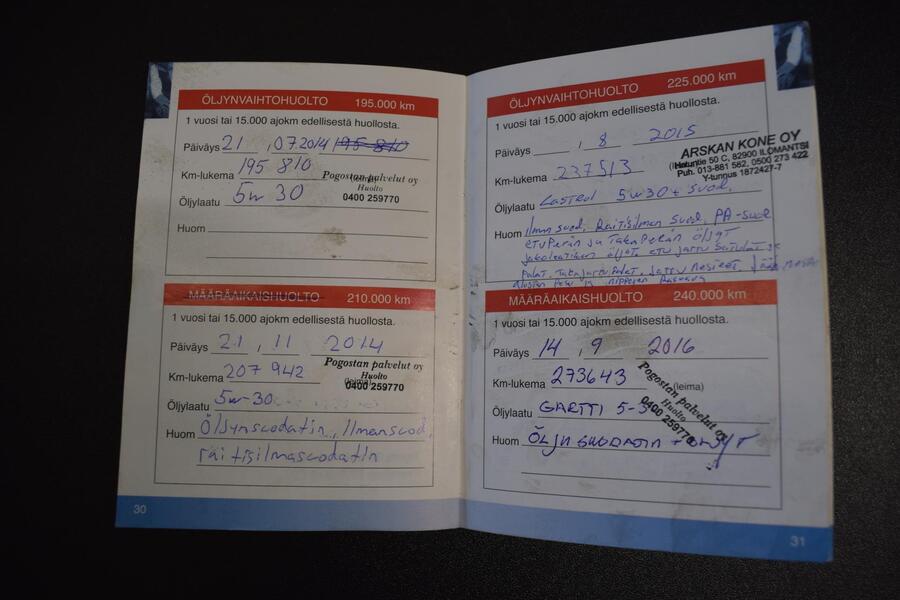 ÖLJYNVAIHTOHUOLTO 195.000 km
1 vuosi tai 15.000 ajokm edellisestä huollosta.
Päiväys 21 , 07.2014 195 810
Km-lukema 195 810
Pogostan palvelut oy
(leima)
Huolto
0400 259770
Öljylaatu 5w 30
Huom
MÄÄRÄAIKAISHUOLTO 210.000 km
1 vuosi tai 15.000 ajokm edellisestä huollosta.
Päiväys 21 , 11 2014
Pogostan palvelut oy
Huolto
(leima)
0400 259770
Km-lukema 207 942
Öljylaatu 5w-30
Huom Öljynsuodatin, Ilmansuod,
räitisilmasuodatin
30
ÖLJYNVAIHTOHUOLTO 225.000 km
1 vuosi tai 15.000 ajokm edellisestä huollosta.
Päiväys , 8 2015
ARSKAN KONE OY
50 C, 82900 ILOMANTSI
Puh. 013-881 582, 0500 273 422
Y-tunnus 1872427-7
Km-lukema 237513
Öljylaatu Castrol 5w30 + suod,
Huom Ilman suod, Raitisilman suod, PA-suod
etuperän ja takaperän öljyt
öljyt, etu jarru
palat, takajarrupalat, Jarru nesteet,
MÄÄRÄAIKAISHUOLTO 240.000 km
1 vuosi tai 15.000 ajokm edellisestä huollosta.
Päiväys 14 , 9 2016
Km-lukema 273643
(leima)
Pogostan palvelut oy
Huolto
0400 259770
Öljylaatu GARTTI 5-3
Huom ÖLJY SUODATIN +
31